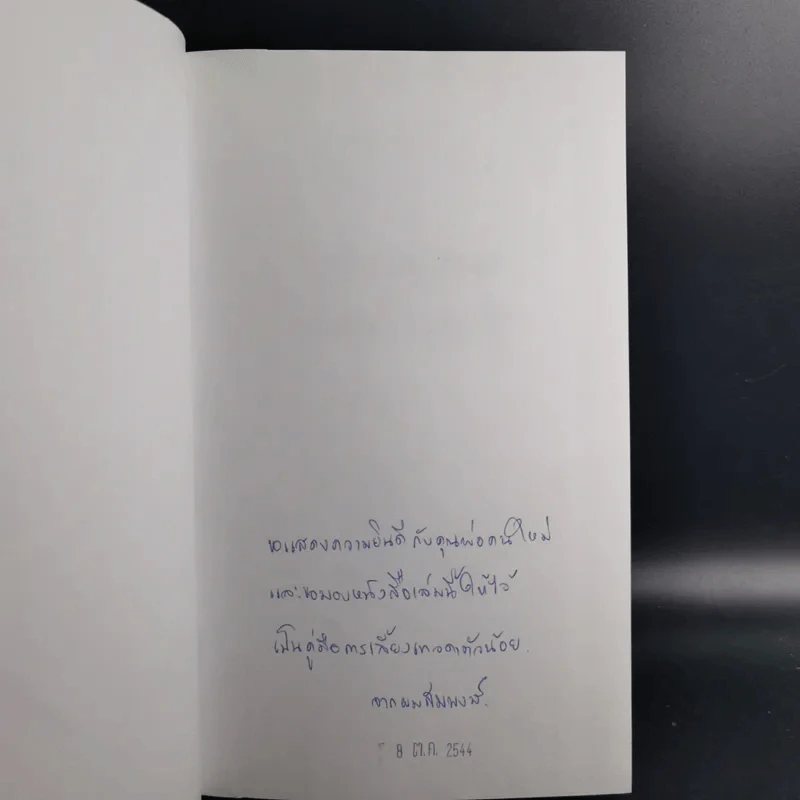 ขอแสดงความยินดี กับคุณพ่อคนใหม่
และขอมอบหนังสือเล่มนี้ให้ไว้
เป็นคู่มือการเลี้ยงเทวดาตัวน้อย.
จากผม สมพงษ์.
8 ต.ค. 2544